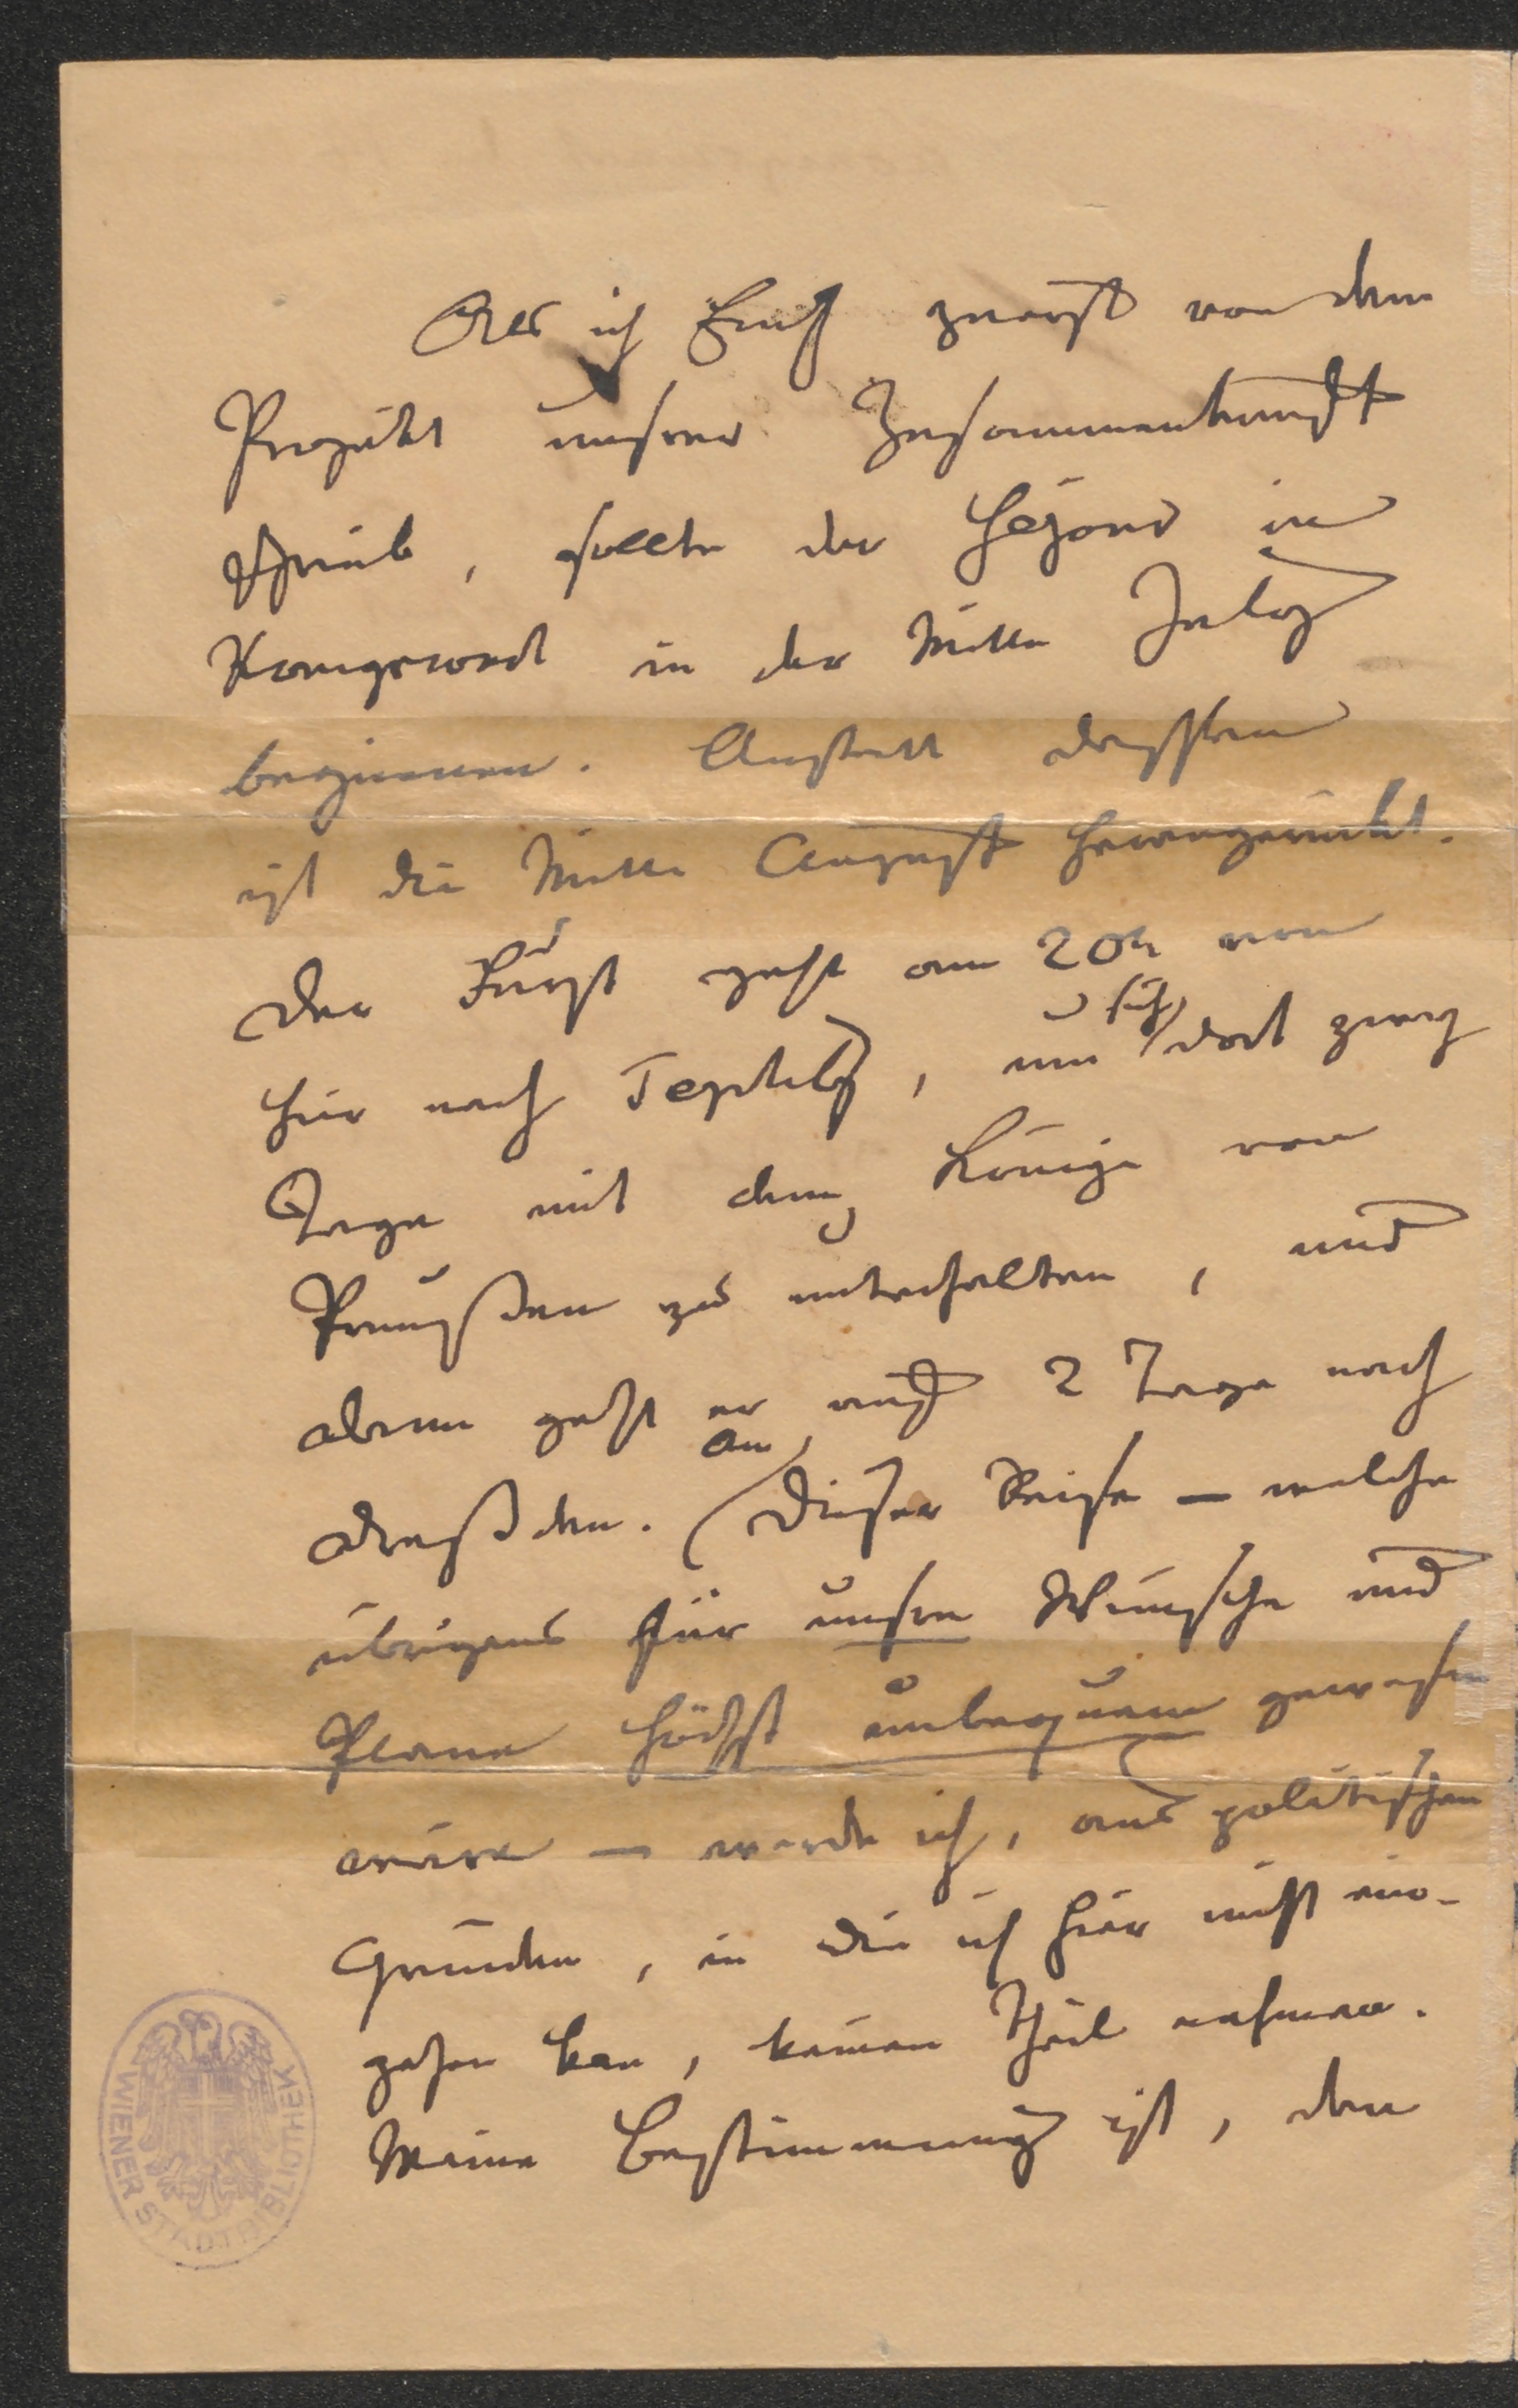 Als ich Euch zuerst von dem
Projekt unsrer Zusammenkunft
schrieb, sollte der Séjour in
Königswart in der Mitte July
beginnen. Anstatt dessen
ist die Mitte August herangerückt.
Der Fürst geht am 20n von
hier nach Teplitz, um sich dort zwey
Tage mit dem Könige von
Preußen zu unterhalten, und
alsdann geht er auf 2 Tage nach
Dreßden. An dieser Reise – welche
übrigens für unsre Wünsche und
Plane höchst unbequem gewesen
wäre – werde ich, aus politischen
Gründen, in die ich hier nicht ein-
gehen kan, keinen Theil nehmen.
Meine Bestimmung ist, den
WIENER STADTBIBLIOTHEK